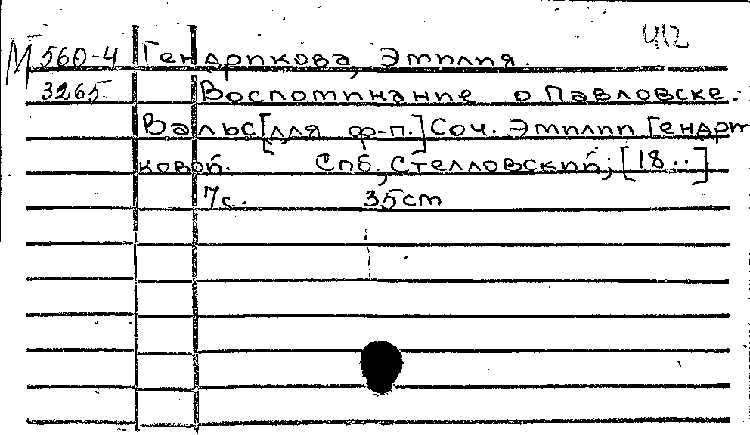 412
М 560-4 Гендрикова, Эмилия.
3265 Воспоминание о Павловске.
Вальс [для ф-п.] Соч. Эмилии Гендри
ковой. Спб, Стелловский, [18..]
7с. 35см